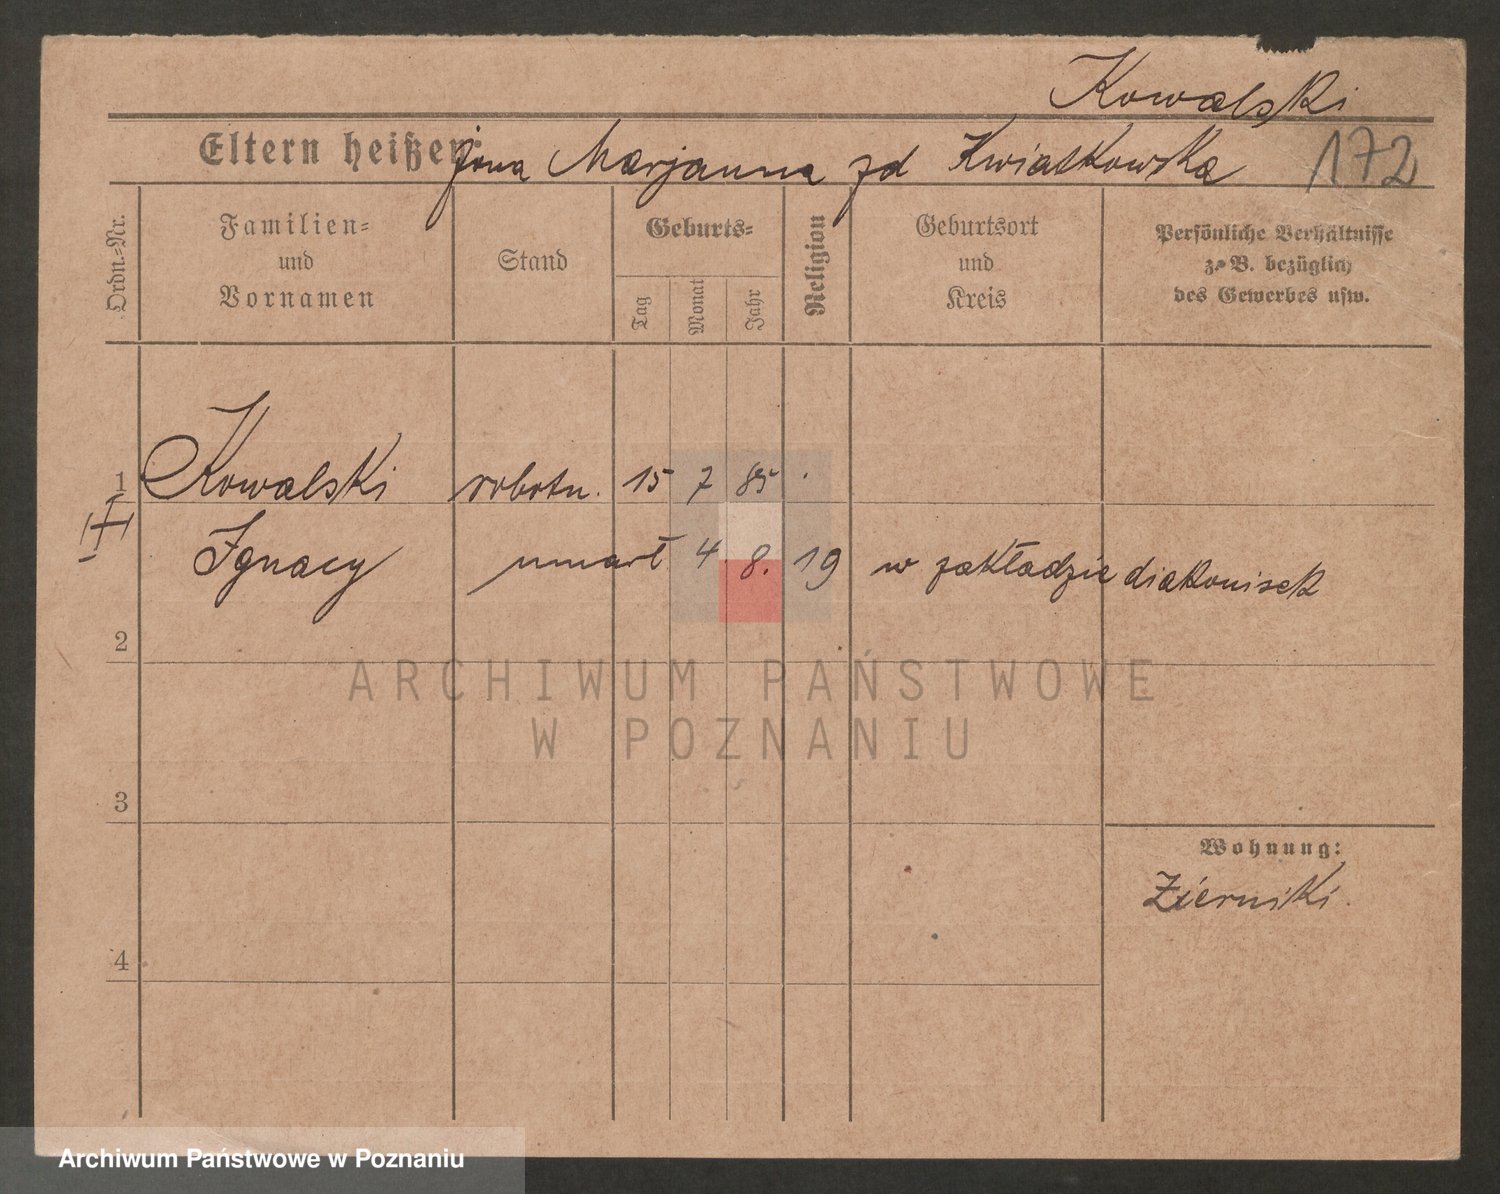 Kowalski
Eltern heißen: żona Marjanna zd Kwiatkowska 172
Ordn.-Nr.
Familien-
und
Vornamen
Stand
Geburts-
Tag
Monat
Jahr
Religion
Geburtsort
und
Kreis
Persönliche Verhältnisse
z. B. bezüglich
des Gewerbes usw.
1 Kowalski robotn. 15 7 85
Ignacy umarł 4. 8. 19 w zakładzie diakonisek
2
ARCHIWUM PAŃSTWOWE
W POZNANIU
3
Wohnung:
Zierniki.
4
Archiwum Państwowe w Poznaniu